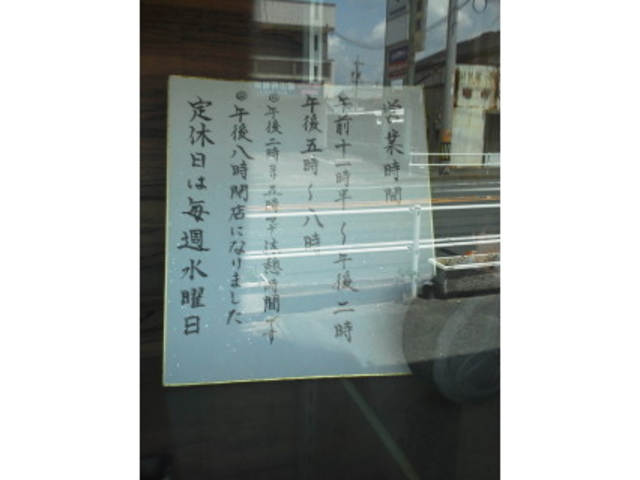 営業時間
午前十一時半～午後二時
午後五時～八時
㊟午後二時より五時まで休憩時間です
㊟午後八時閉店になりました
定休日は毎週水曜日